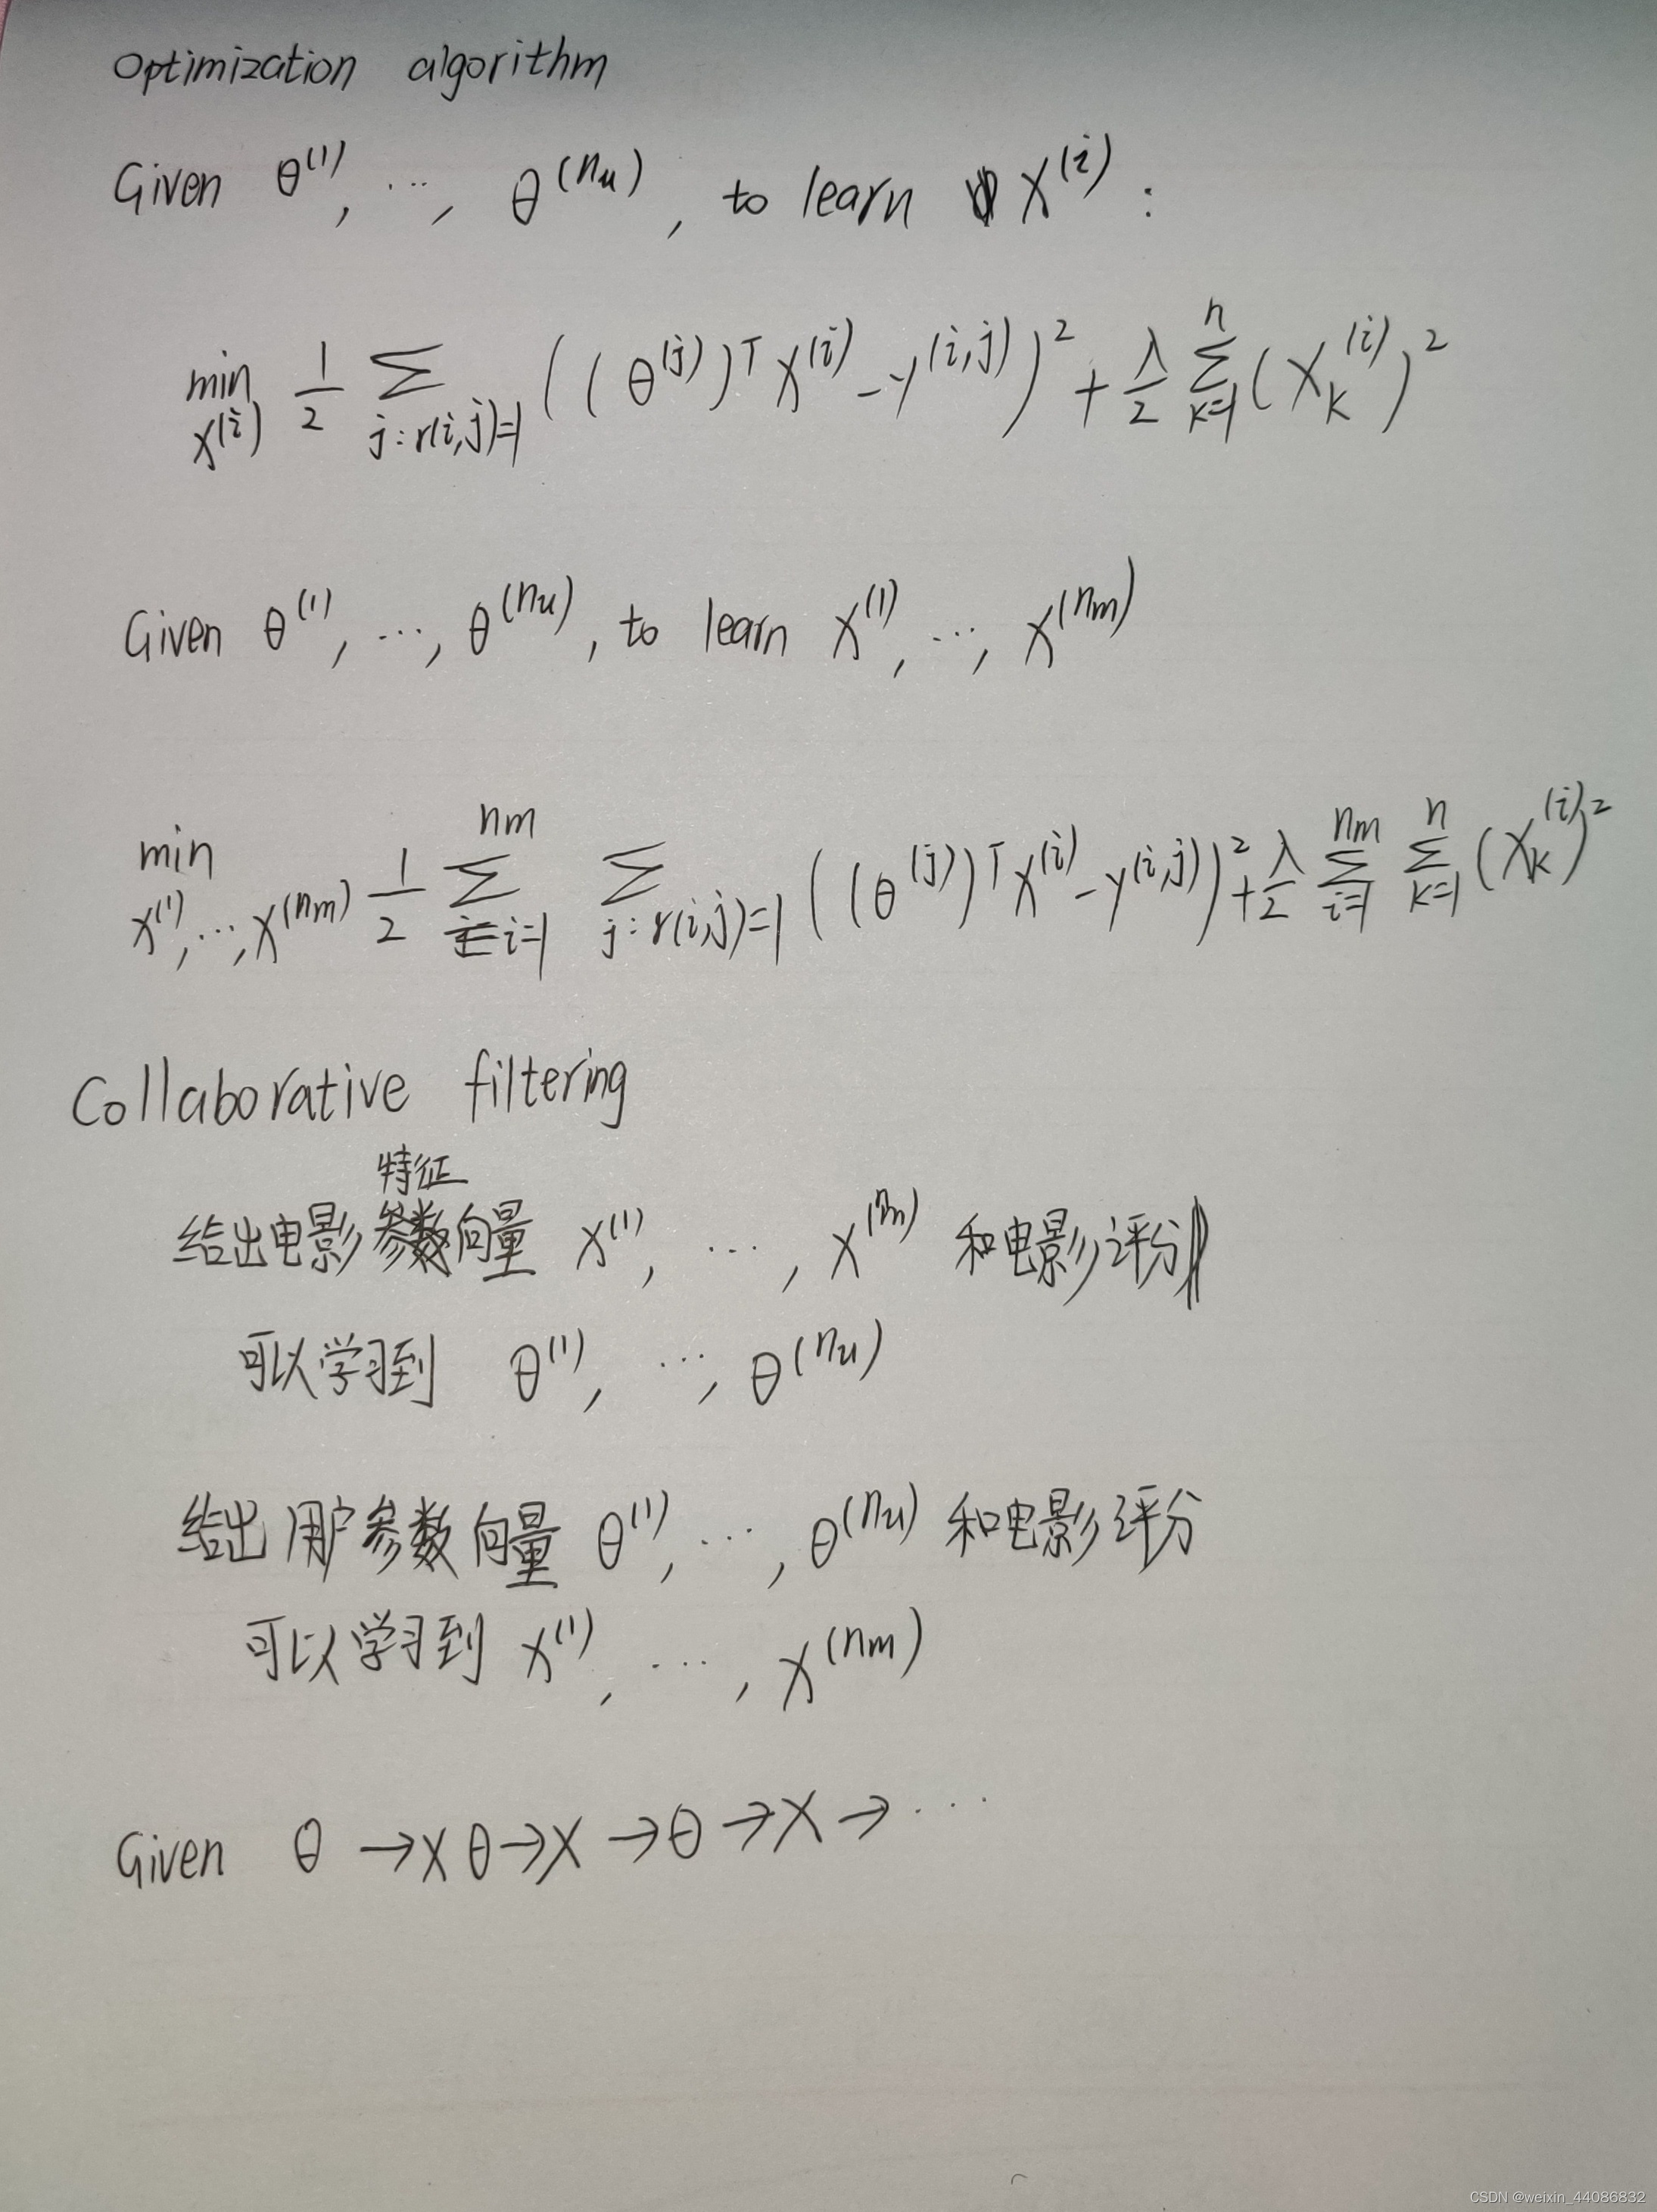 Optimization algorithm
Given θ^(1), ..., θ^(nu), to learn X^(i) :
min_{X^(i)} 1/2 Σ_{j:r(i,j)=1} ((θ^(j))^T X^(i) - y^(i,j))^2 + λ/2 Σ_{k=1}^{n} (X_k^(i))^2
Given θ^(1), ..., θ^(nu), to learn X^(1), ..., X^(nm)
min_{X^(1), ..., X^(nm)} 1/2 Σ_{i=1}^{nm} Σ_{j:r(i,j)=1} ((θ^(j))^T X^(i) - y^(i,j))^2 + λ/2 Σ_{i=1}^{nm} Σ_{k=1}^{n} (X_k^(i))^2
Collaborative filtering
特征
给出电影参数向量 X^(1), ..., X^(nm) 和电影评分
可以学习到 θ^(1), ..., θ^(nu)
给出用户参数向量 θ^(1), ..., θ^(nu) 和电影评分
可以学习到 X^(1), ..., X^(nm)
Given θ → X θ → X → θ → X → ...
CSDN @weixin_44086832